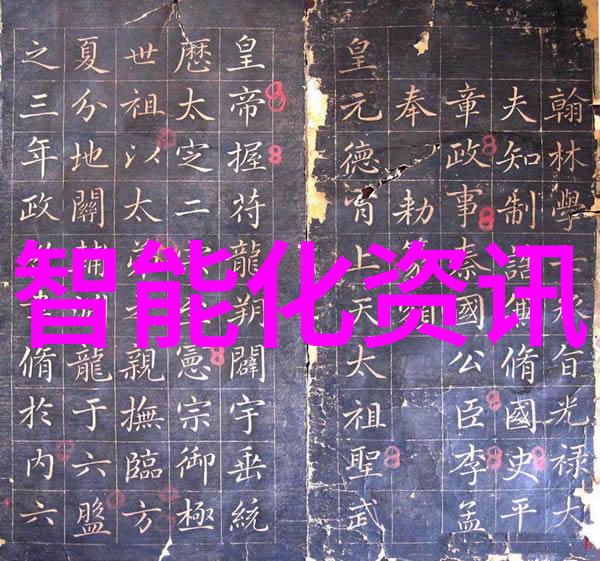 智能化资讯
翰林學士承旨光祿大
夫知制誥兼脩國史平
章政事秦國公臣李孟
奉勅篆
皇元德上天太祖聖武
皇帝握符龍朔闢宇垂統
厯太定二憲宗御極
世祖以太親撫臨方
夏分地關輔龍于六盤
之三年政脩於内六